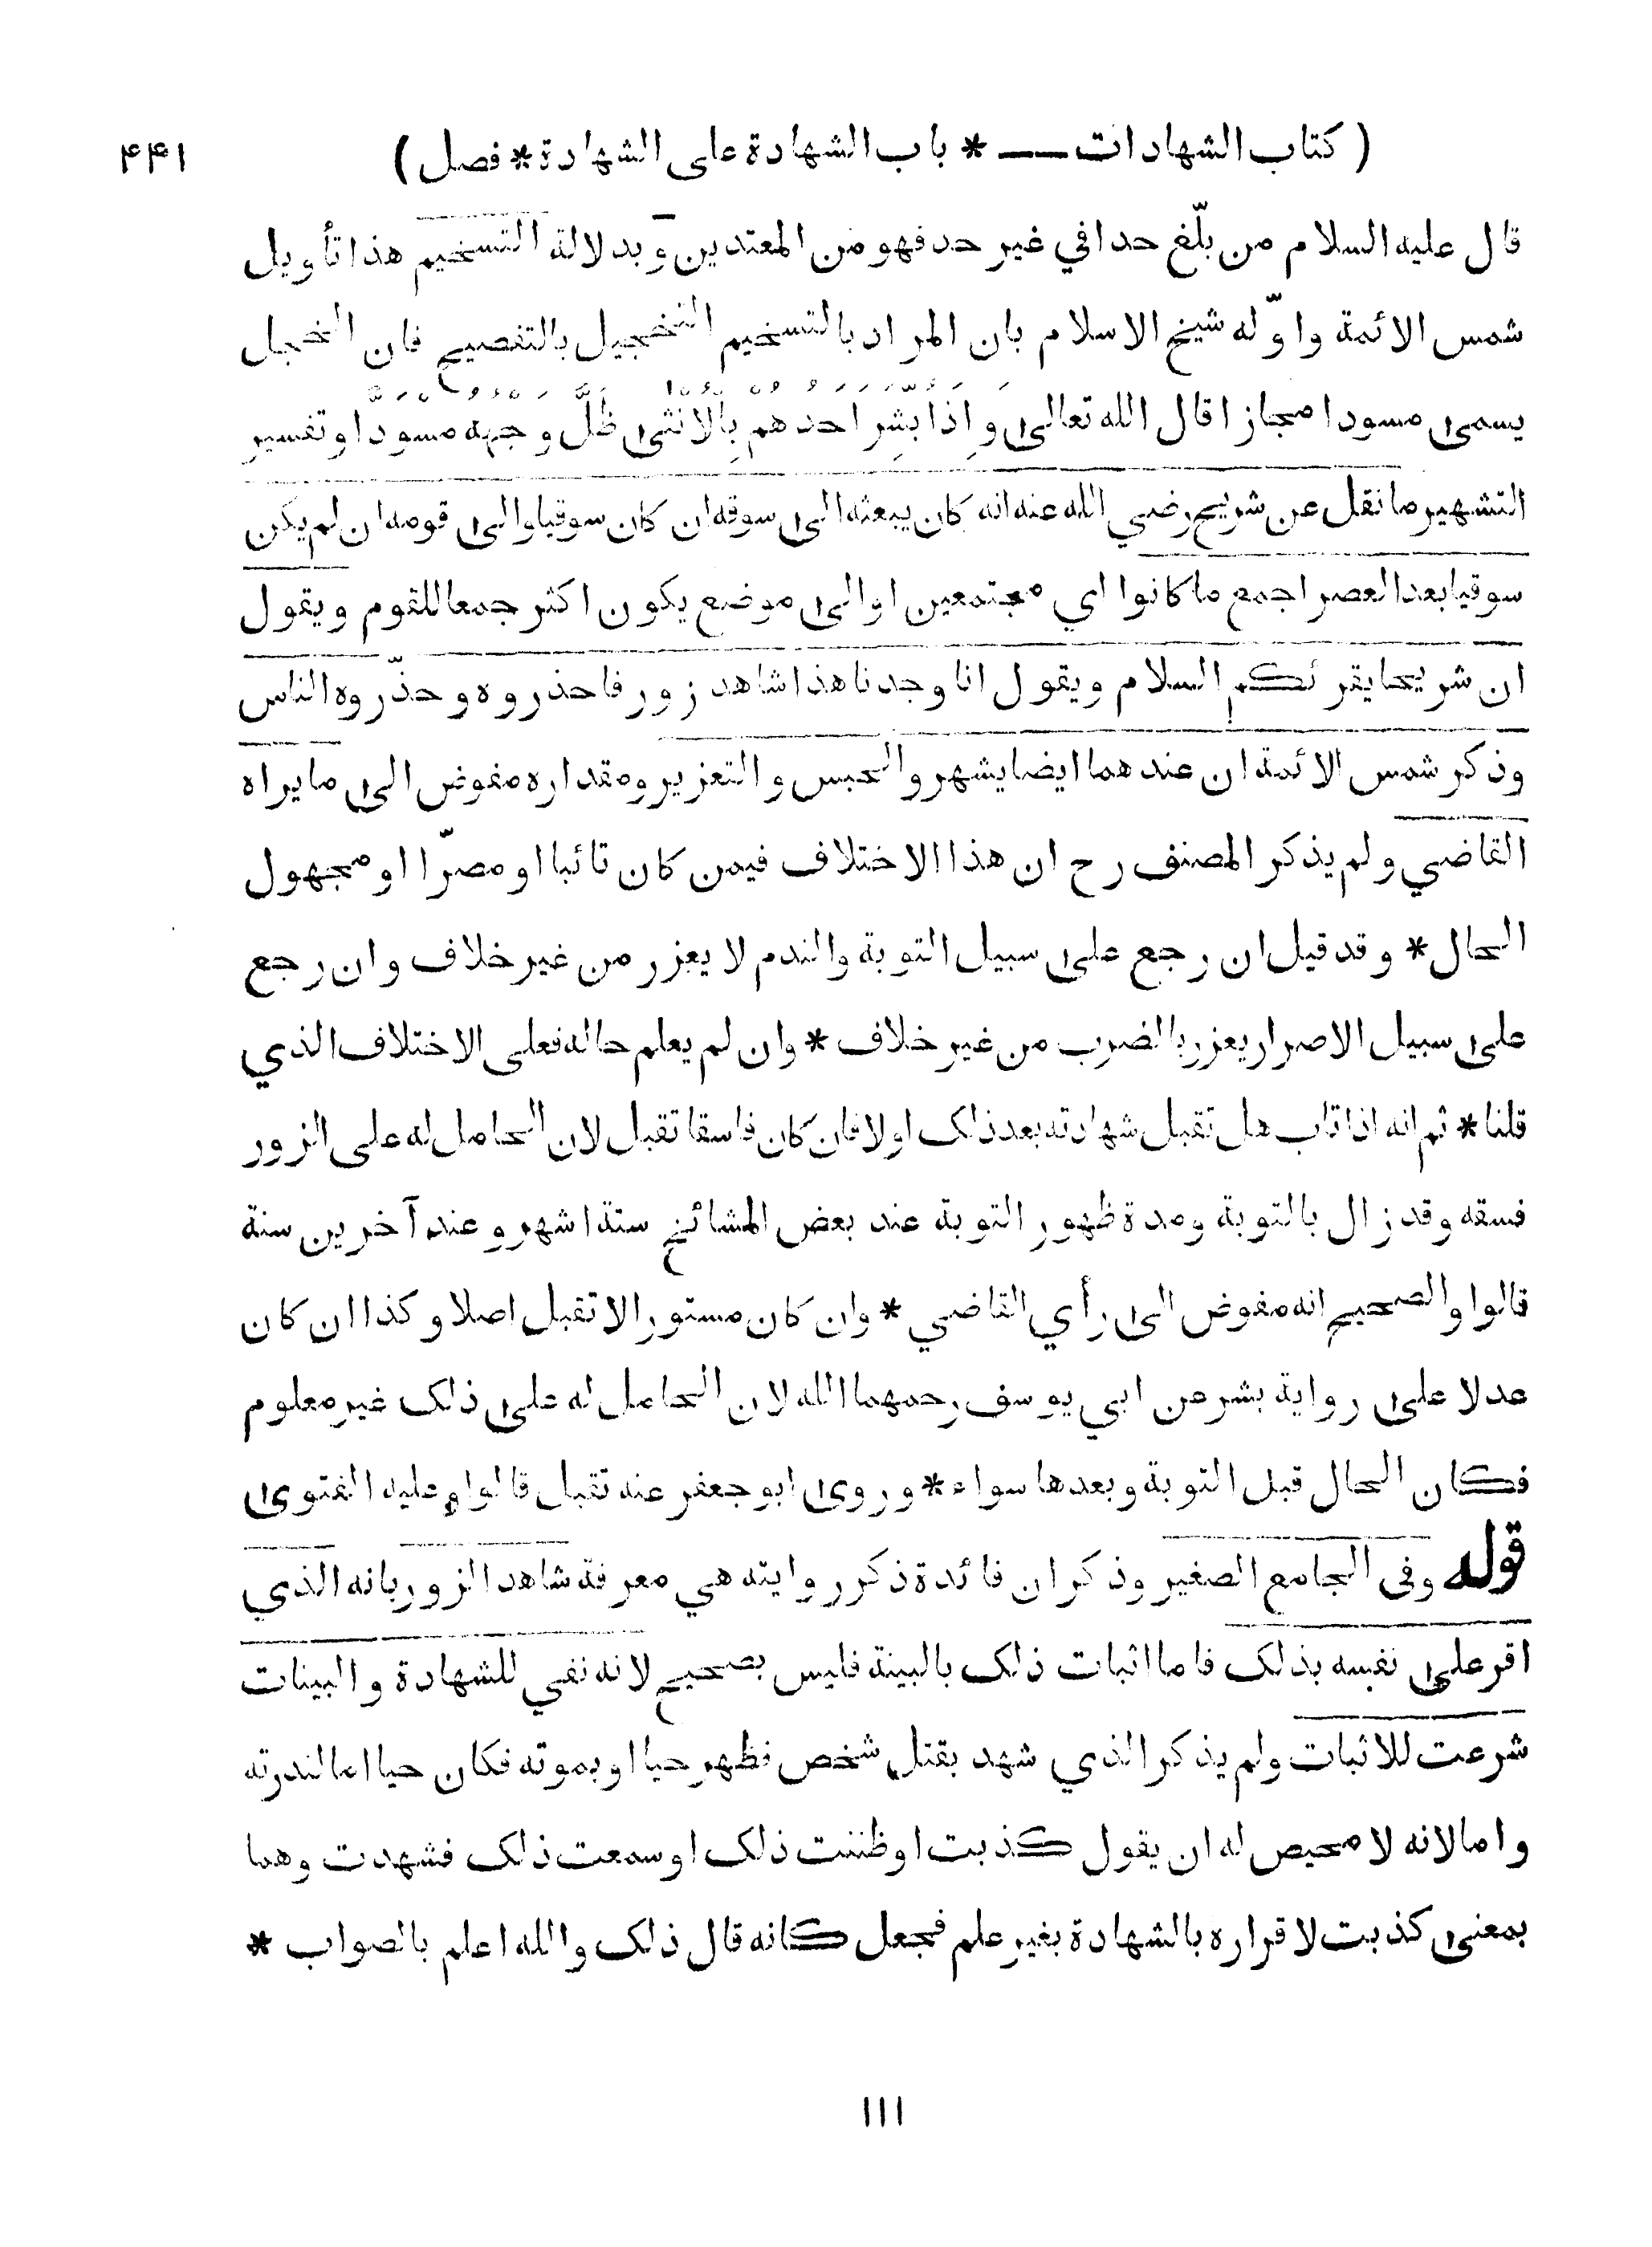 ( كتاب الشهادات — * باب الشهادة على الشهادة * فصل ) ۴۴۱
قال عليه السلام من بلّغ حدا في غير حد فهو من المعتدين وبدلالة التسخيم هذا تأويل
شمس الائمة واوّله شيخ الاسلام بان المراد بالتسخيم التخجيل بالتفصيح فان الخجل
يسمى مسودا مجازا قال الله تعالى وَاِذَا بُشِّرَ اَحَدُهُمْ بِالْاُنْثٰى ظَلَّ وَجْهُهٗ مُسْوَدًّا وتفسير
التشهير ما نقل عن شريح رضي الله عنه انه كان يبعثه الى سوقه ان كان سوقيا والى قومه ان لم يكن
سوقيا بعد العصر اجمع ما كانوا اي مجتمعين او الى موضع يكون اكثر جمعا للقوم ويقول
ان شريحا يقرئكم السلام ويقول انا وجدنا هذا شاهد زور فاحذروه وحذّروه الناس
وذكر شمس الائمة ان عندهما ايضا يشهر والحبس والتعزير ومقداره مفوض الى ما يراه
القاضي ولم يذكر المصنف رح ان هذا الاختلاف فيمن كان تائبا او مصرّا او مجهول
الحال * وقد قيل ان رجع على سبيل التوبة والندم لا يعزر من غير خلاف وان رجع
على سبيل الاصرار يعزر بالضرب من غير خلاف * وان لم يعلم حاله فعلى الاختلاف الذي
قلنا * ثم انه اذا تاب هل تقبل شهادته بعد ذلك اولا فان كان فاسقا تقبل لان الحامل له على الزور
فسقه وقد زال بالتوبة ومدة ظهور التوبة عند بعض المشائخ ستة اشهر وعند آخرين سنة
قالوا والصحيح انه مفوض الى رأي القاضي * وان كان مستورا لا تقبل اصلا وكذا ان كان
عدلا على رواية بشر عن ابي يوسف رحمهما الله لان الحامل له على ذلك غير معلوم
فكان الحال قبل التوبة وبعدها سواء * وروى ابو جعفر عنه تقبل قالوا وعليه الفتوى
قوله وفى الجامع الصغير وذكر ان فائدة ذكر روايته هي معرفة شاهد الزور بانه الذي
اقر على نفسه بذلك فاما اثبات ذلك بالبينة فليس بصحيح لانه نفي للشهادة والبينات
شرعت للاثبات ولم يذكر الذي شهد بقتل شخص فظهر حيا او بموته فكان حيا اما لندرته
واما لانه لا محيص له ان يقول كذبت او ظننت ذلك او سمعت ذلك فشهدت وهما
بمعنى كذبت لاقراره بالشهادة بغير علم فجعل كانه قال ذلك والله اعلم بالصواب *
١١١